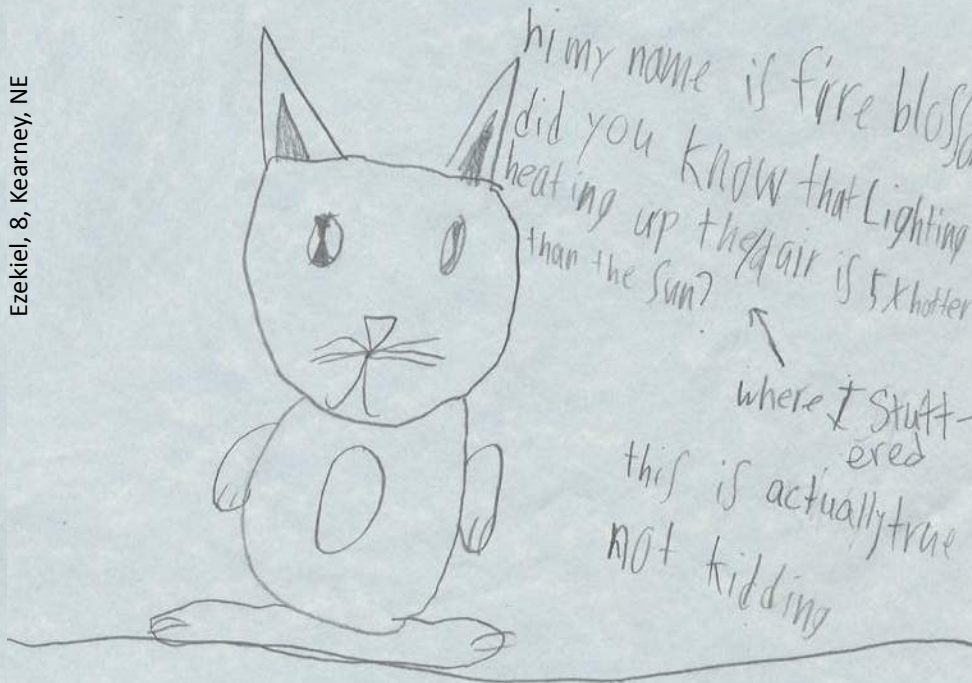 Ezekiel, 8, Kearney, NE
hi my name is firre blosso
did you know that Lighting
heating up the air is 5x hotter
than the sun?
where I Stutt-
ered
this is actually true
not kidding